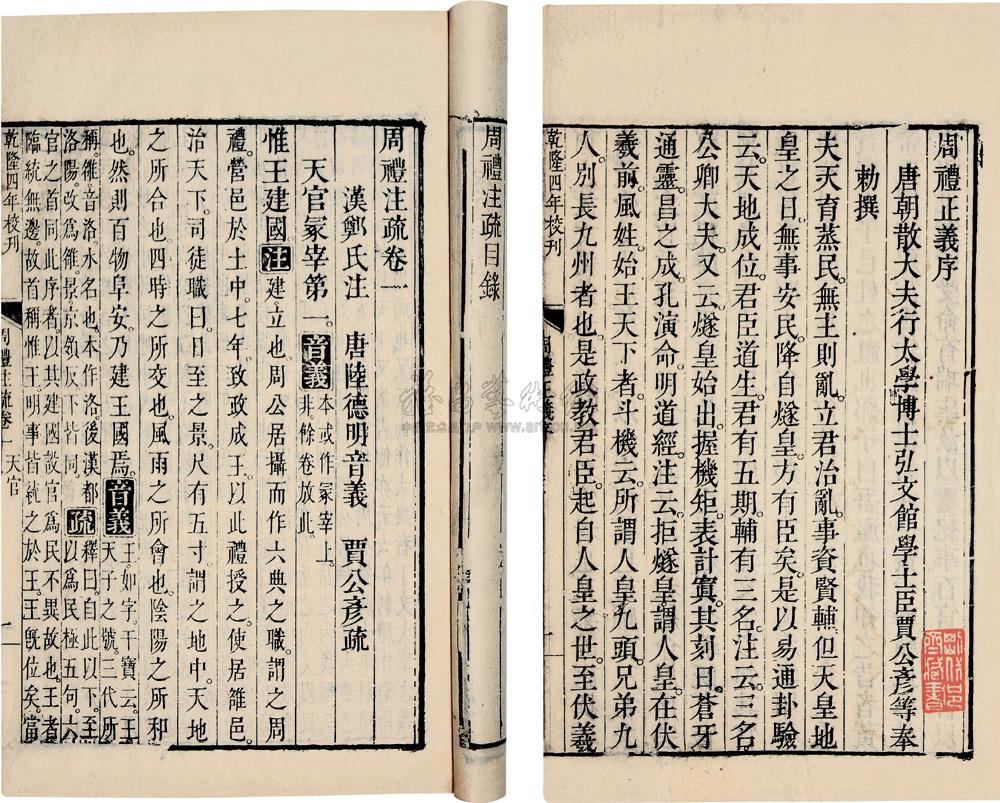 周禮正義序
唐朝散大夫行太學博士弘文館學士臣賈公彥等奉
勅撰
夫天育蒸民。無主則亂。立君治亂。事資賢輔。但天皇地
皇之日。無事安民。降自燧皇。方有臣矣。是以易通卦驗
云。天地成位。君臣道生。君有五期。輔有三名。注云。三名
公卿大夫。又云。燧皇始出。握機矩。表計寘。其刻曰。蒼牙
通靈。昌之成。孔演命。明道經。注云。拒燧皇。謂人皇。在伏
羲前。風姓。始王天下者。斗機云。所謂人皇九頭。兄弟九
人。別長九州者也。是政教君臣。起自人皇之世。至伏羲
乾隆四年校刊
周禮正義序
周禮注疏目錄
周禮注疏卷一
漢鄭氏注 唐陸德明音義 賈公彥疏
天官冢宰第一。音義本或作冢宰上。
非。餘卷放此。
惟王建國注建。立也。周公居攝而作六典之職。謂之周
禮。營邑於土中。七年。致政成王。以此禮授之。使居雒邑。
治天下。司徒職曰。日至之景。尺有五寸。謂之地中。天地
之所合也。四時之所交也。風雨之所會也。陰陽之所和
也。然則百物阜安。乃建王國焉。音義王。如字。干寶云。王
天子之號。三代所
稱。雒音洛。水名也。本作洛。後漢都
洛陽。改爲雒。景。京領反。下皆同。疏釋曰。自此以下。至
以爲民極五句。六
官之首同此序者。以其建國設官。爲民不異故也。王者
臨統無邊。故首稱惟王。明事皆統之於王。王旣位矣。當
乾隆四年校刊
周禮注疏卷一 天官
一